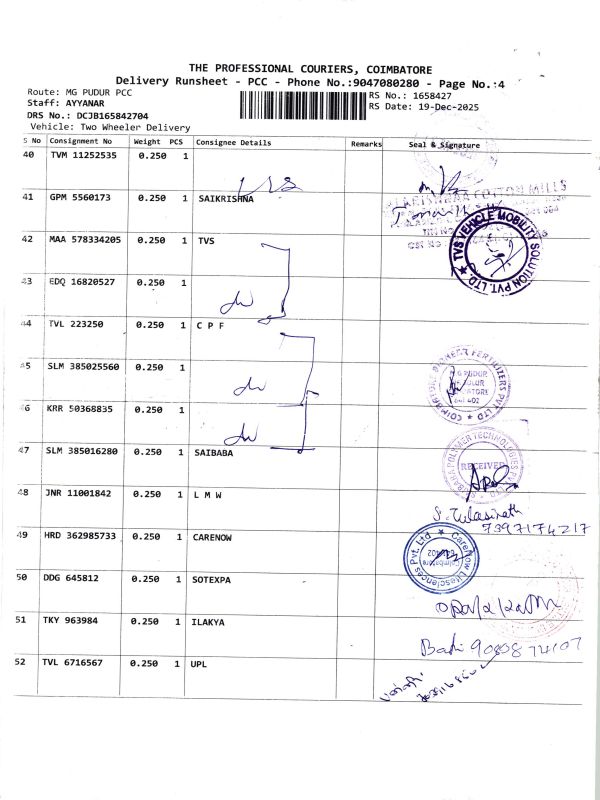 THE PROFESSIONAL COURIERS, COIMBATORE
Delivery Runsheet - PCC - Phone No.:9047080280 - Page No.:4
Route: MG PUDUR PCC
RS No.: 1658427
Staff: AYYANAR
RS Date: 19-Dec-2025
DRS No.: DCJB165842704
Vehicle: Two Wheeler Delivery
S No Consignment No Weight PCS Consignee Details Remarks Seal & Signature
40 TVM 11252535 0.250 1
41 GPM 5560173 0.250 1 SAIKRISHNA
42 MAA 578334205 0.250 1 TVS
TVS VEHICLE MOBILITY SOLUTION PVT. LTD
43 EDQ 16820527 0.250 1
44 TVL 223250 0.250 1 C P F
45 SLM 385025560 0.250 1
PIONEER FERTILIZERS PVT LTD
46 KRR 50368835 0.250 1
47 SLM 385016280 0.250 1 SAIBABA
POLYMER TECHNOLOGIES
RECEIVED
48 JNR 11001842 0.250 1 L M W
S. Tulasinath
7397174217
49 HRD 362985733 0.250 1 CARENOW
CareNow Lifesciences Pvt. Ltd
Coimbatore
50 DDG 645812 0.250 1 SOTEXPA
51 TKY 963984 0.250 1 ILAKYA
52 TVL 6716567 0.250 1 UPL